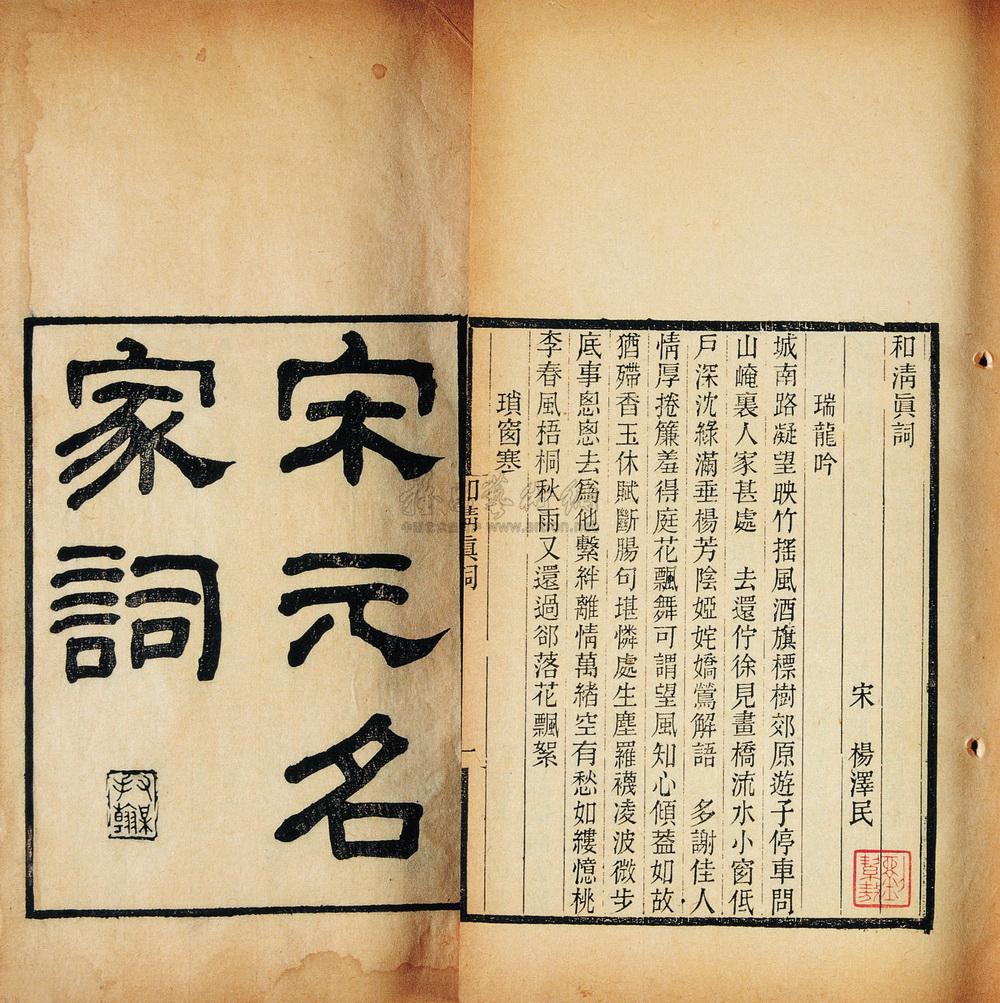 和淸眞詞
宋 楊澤民
瑞龍吟
城南路凝望映竹搖風酒旗標樹郊原遊子停車問
山崦裏人家甚處 去還佇徐見畫橋流水小窗低
戶深沈綠滿垂楊芳陰婭姹嬌鶯解語 多謝佳人
情厚捲簾羞得庭花飄舞可謂望風知心傾蓋如故
猶殢香玉休賦斷腸句堪憐處生塵羅襪凌波微步
底事悤悤去爲他繫絆離情萬緒空有愁如縷憶桃
李春風梧桐秋雨又還過郤落花飄絮
瑣窗寒
和淸眞詞
一
宋元名
家詞
www.artron.net